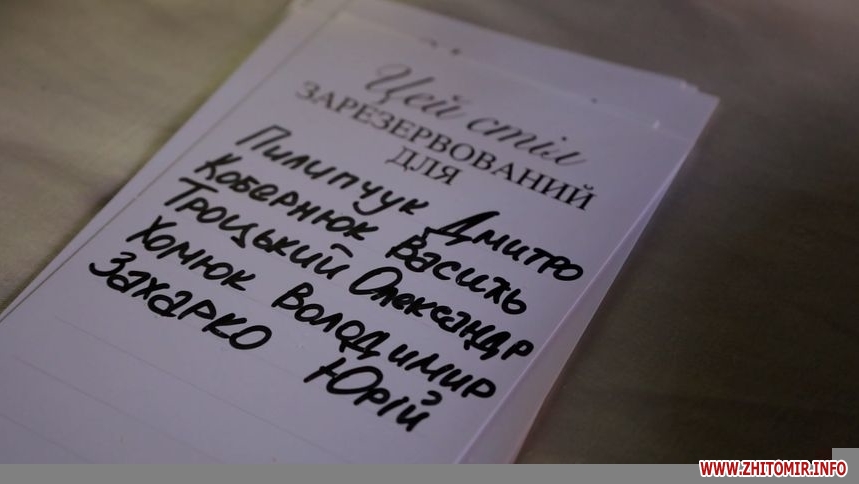 Цей стіл
ЗАРЕЗЕРВОВАНИЙ
ДЛЯ
Пилипчук Дмитро
Кобернюк Василь
Троцький Олександр
Хомюк Володимир
Захарко Юрій
WWW.ZHITOMIR.INFO